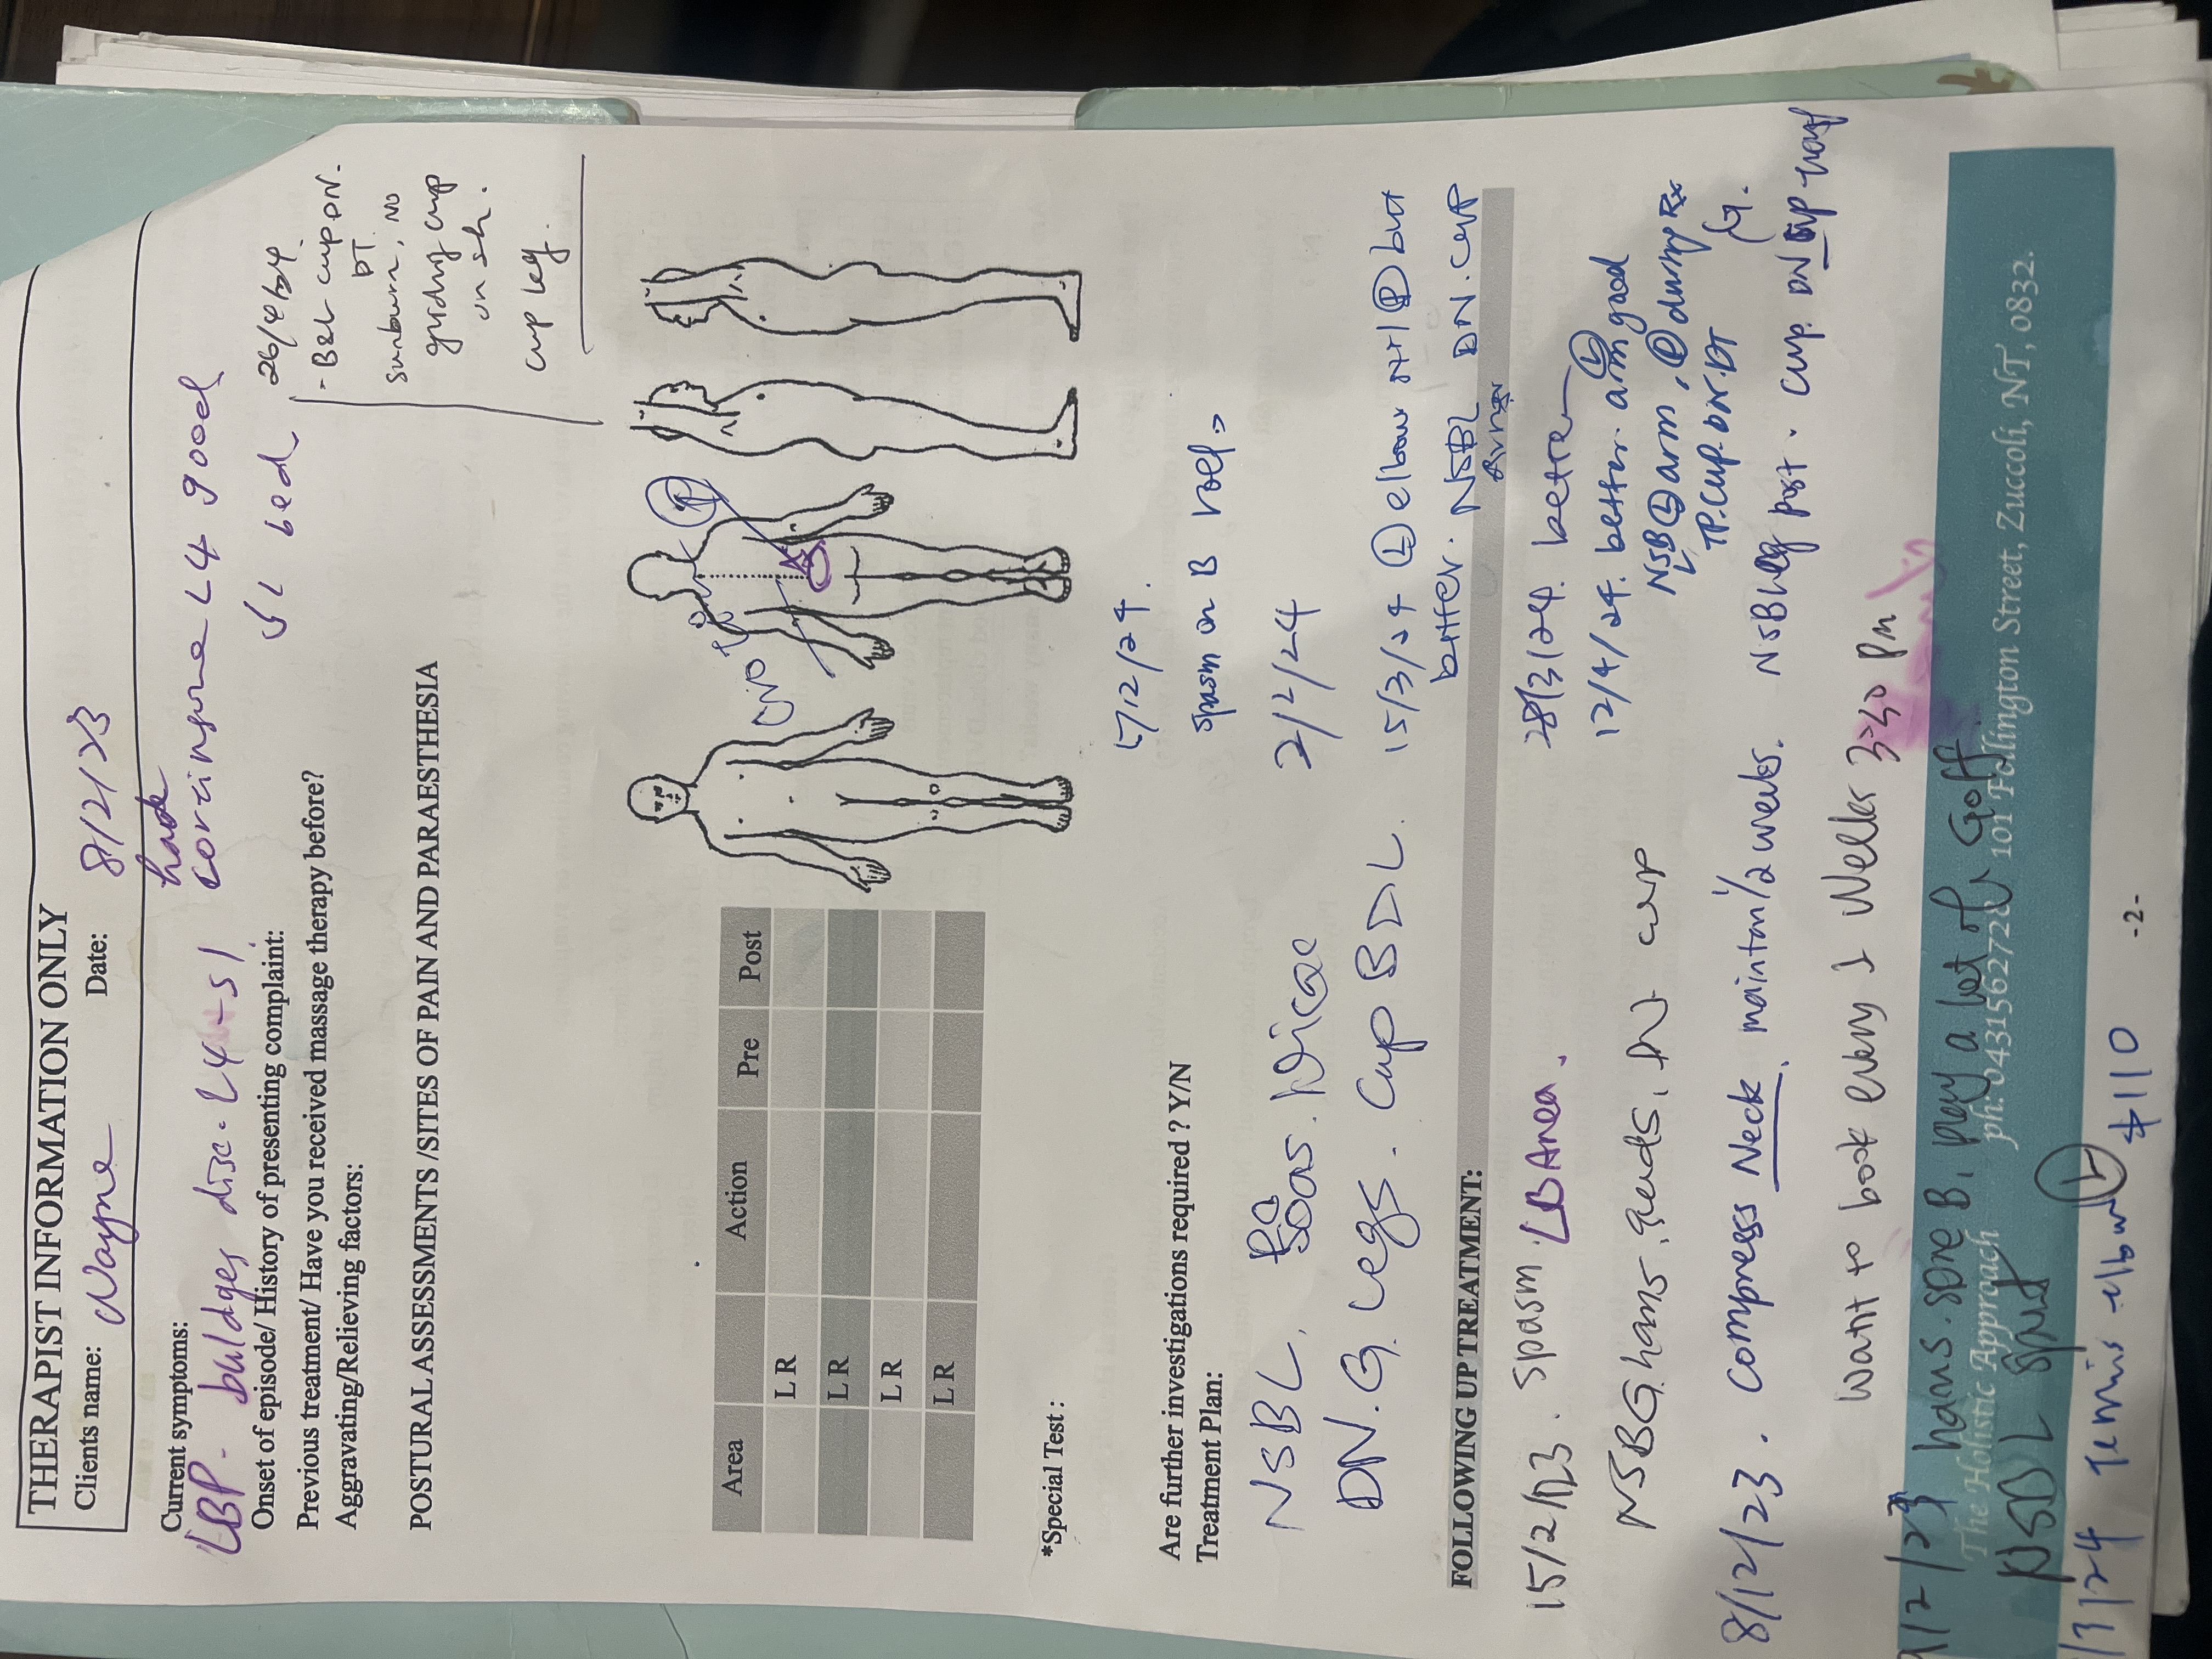 THERAPIST INFORMATION ONLY
Clients name: Wayne Date: 8/2/23
Current symptoms: had
LBP - buldges disc. L4-S1 cortinsone L4 good
Onset of episode/ History of presenting complaint: bed
Previous treatment/ Have you received massage therapy before?
Aggravating/Relieving factors:
26/4/24
- B&L cup DN.
DT.
sunburn, NO
griding cup
on sh.
cup leg.
POSTURAL ASSESSMENTS /SITES OF PAIN AND PARAESTHESIA
Area Action Pre Post
L R
L R
L R
L R
NO
P
*Special Test :
Are further investigations required ? Y/N
Treatment Plan:
5/12/24.
spasm on B
NSBL. Psoas.
2/2/24
DN. G. Legs. Cup BDL.
15/3/24 (L) elbow still (P) but
better. NSBL DN. cup
FOLLOWING UP TREATMENT:
15/2/23. Spasm. LB Area.
28/3/24. better
NSBG hams. quads. DN cup
12/4/24. better. arm good
(L)
NSB (L) arm, (P) during Rx
L TP. cup. DN. DT
8/12/23. compress Neck. maintan 1/2 weeks. NSB leg post. cup. DN
want to book every 2 Weeks 3:30 pm
hams. sore B, play a lot of Goff
The Holistic Approach ph: 0431562728 101 Fallington Street, Zuccoli, NT, 0832.
NSBL
24 Tennis elbow (L) $110
-2-